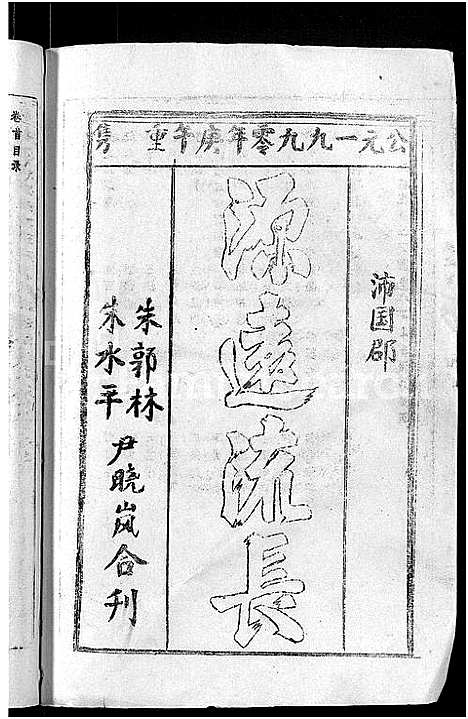 公元一九九零年庚午年重镌
沛国郡
源远流長
朱郭林
朱水平
尹晓岚合刊
卷首目录